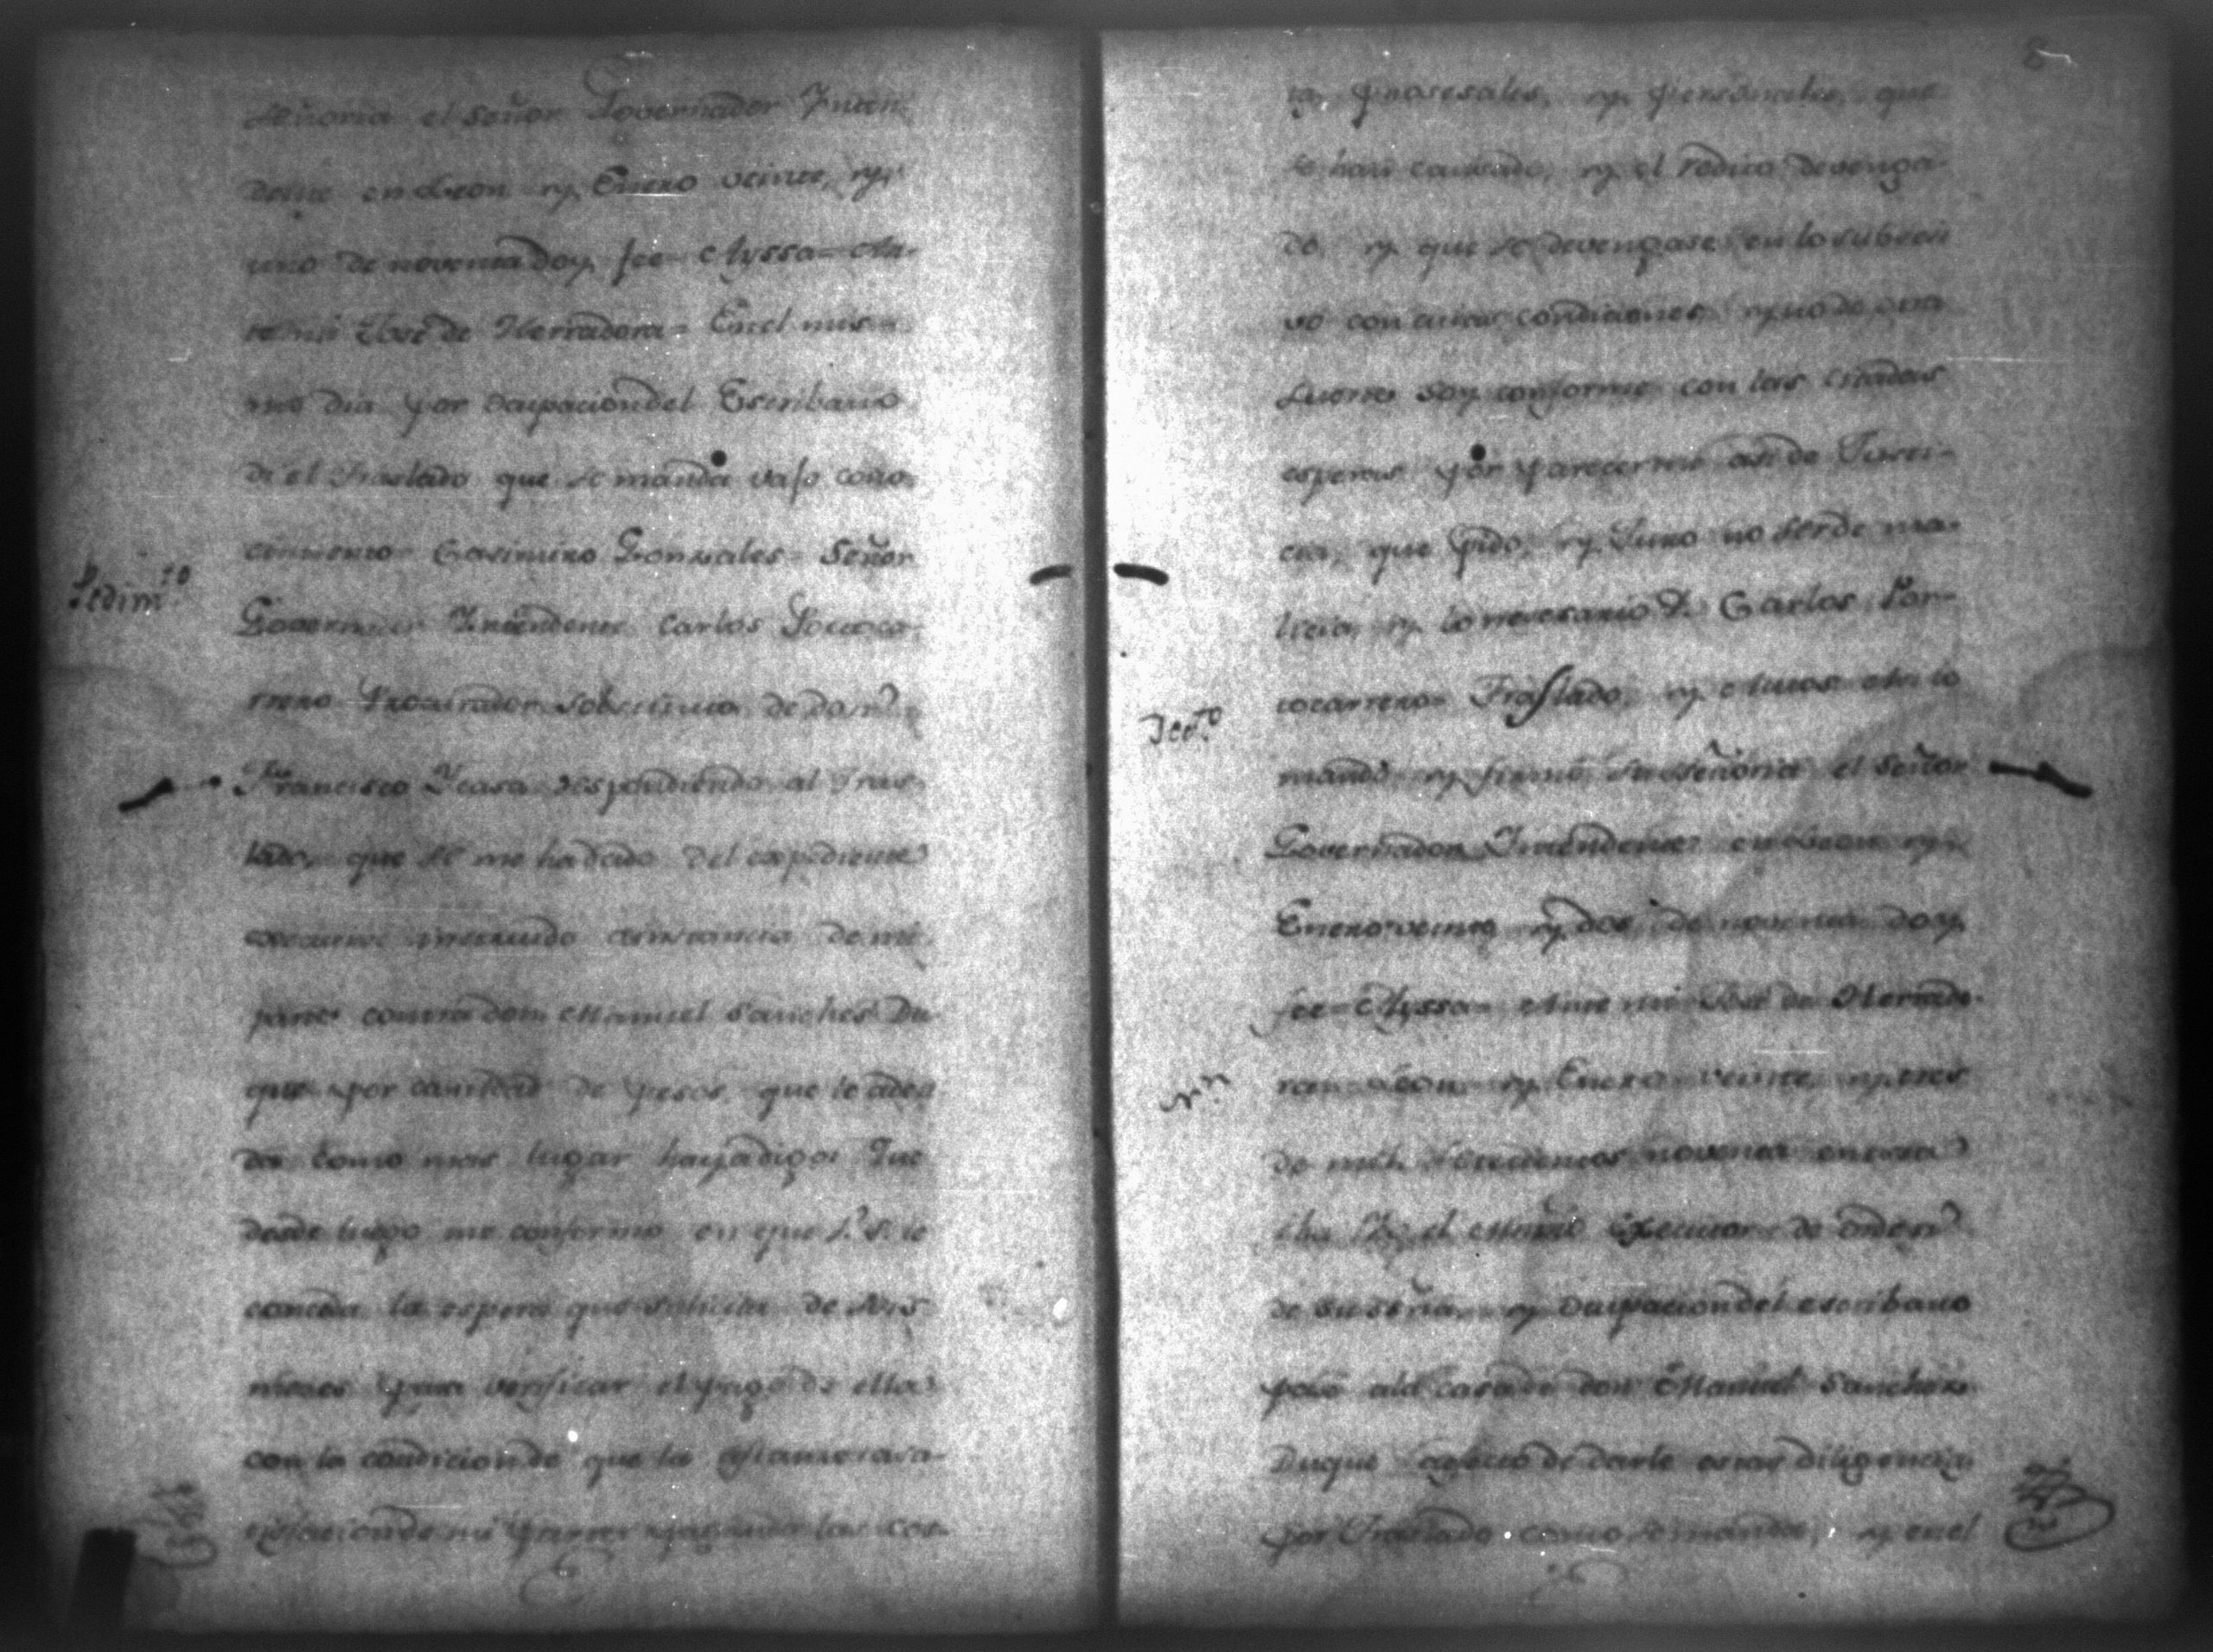 Señoria el señor Governador Inten
dente en Leon y Enero veinte, y
uno de noventa doy fee = Ayssa = An-
te mi José de Herradora = En el mis-
mo dia por ocupacion del Escribano
di el Traslado que se manda vajo cono-
cimiento = Casimiro Gonzales = Señor
Pedim.to
Governador Intendente Carlos Loco
rreno Procurador sobstituto de don
Francisco Ycasa respondiendo al Tras-
lado, que se me ha dado del expediente
executivo instruido a instancia de mi
parte contra don Manuel Sanches Du-
que por cantidad de pesos, que le adeu
da como mas lugar haya digo: Que
desde luego me conformo en que se le
conceda la espera que solicita de seis
meses para verificar el pago de ella
con la condicion de que la
de mi parte pagando las cos-
8
tas prosesales, y personales, que
se han causado, y el redito devenga-
do, y que se devengase en lo subcesi
vo con cuias condiciones, y no de otra
suerte soy conforme con las citadas
esperas por parecerme asi de Justi-
cia, que pido, y Juro no ser de ma-
licia, y lo nesesario &.a Carlos
Traslado, y Autos asi lo
Dec.to
mandó y firmó su señoria el señor
Governador Intendente en Leon y
Enero veinte y dos de noventa doy
fee = Ayssa = Ante mi José de Herrado-
ra = Leon y Enero veinte, y tres
de mil setecientos noventa
Yo el Executor de orden
de su sría y ocupacion del escribano
pasé a la casa de don Manuel Sanches
Duque a efecto de darle estas diligencias
por Traslado como se manda, y en el